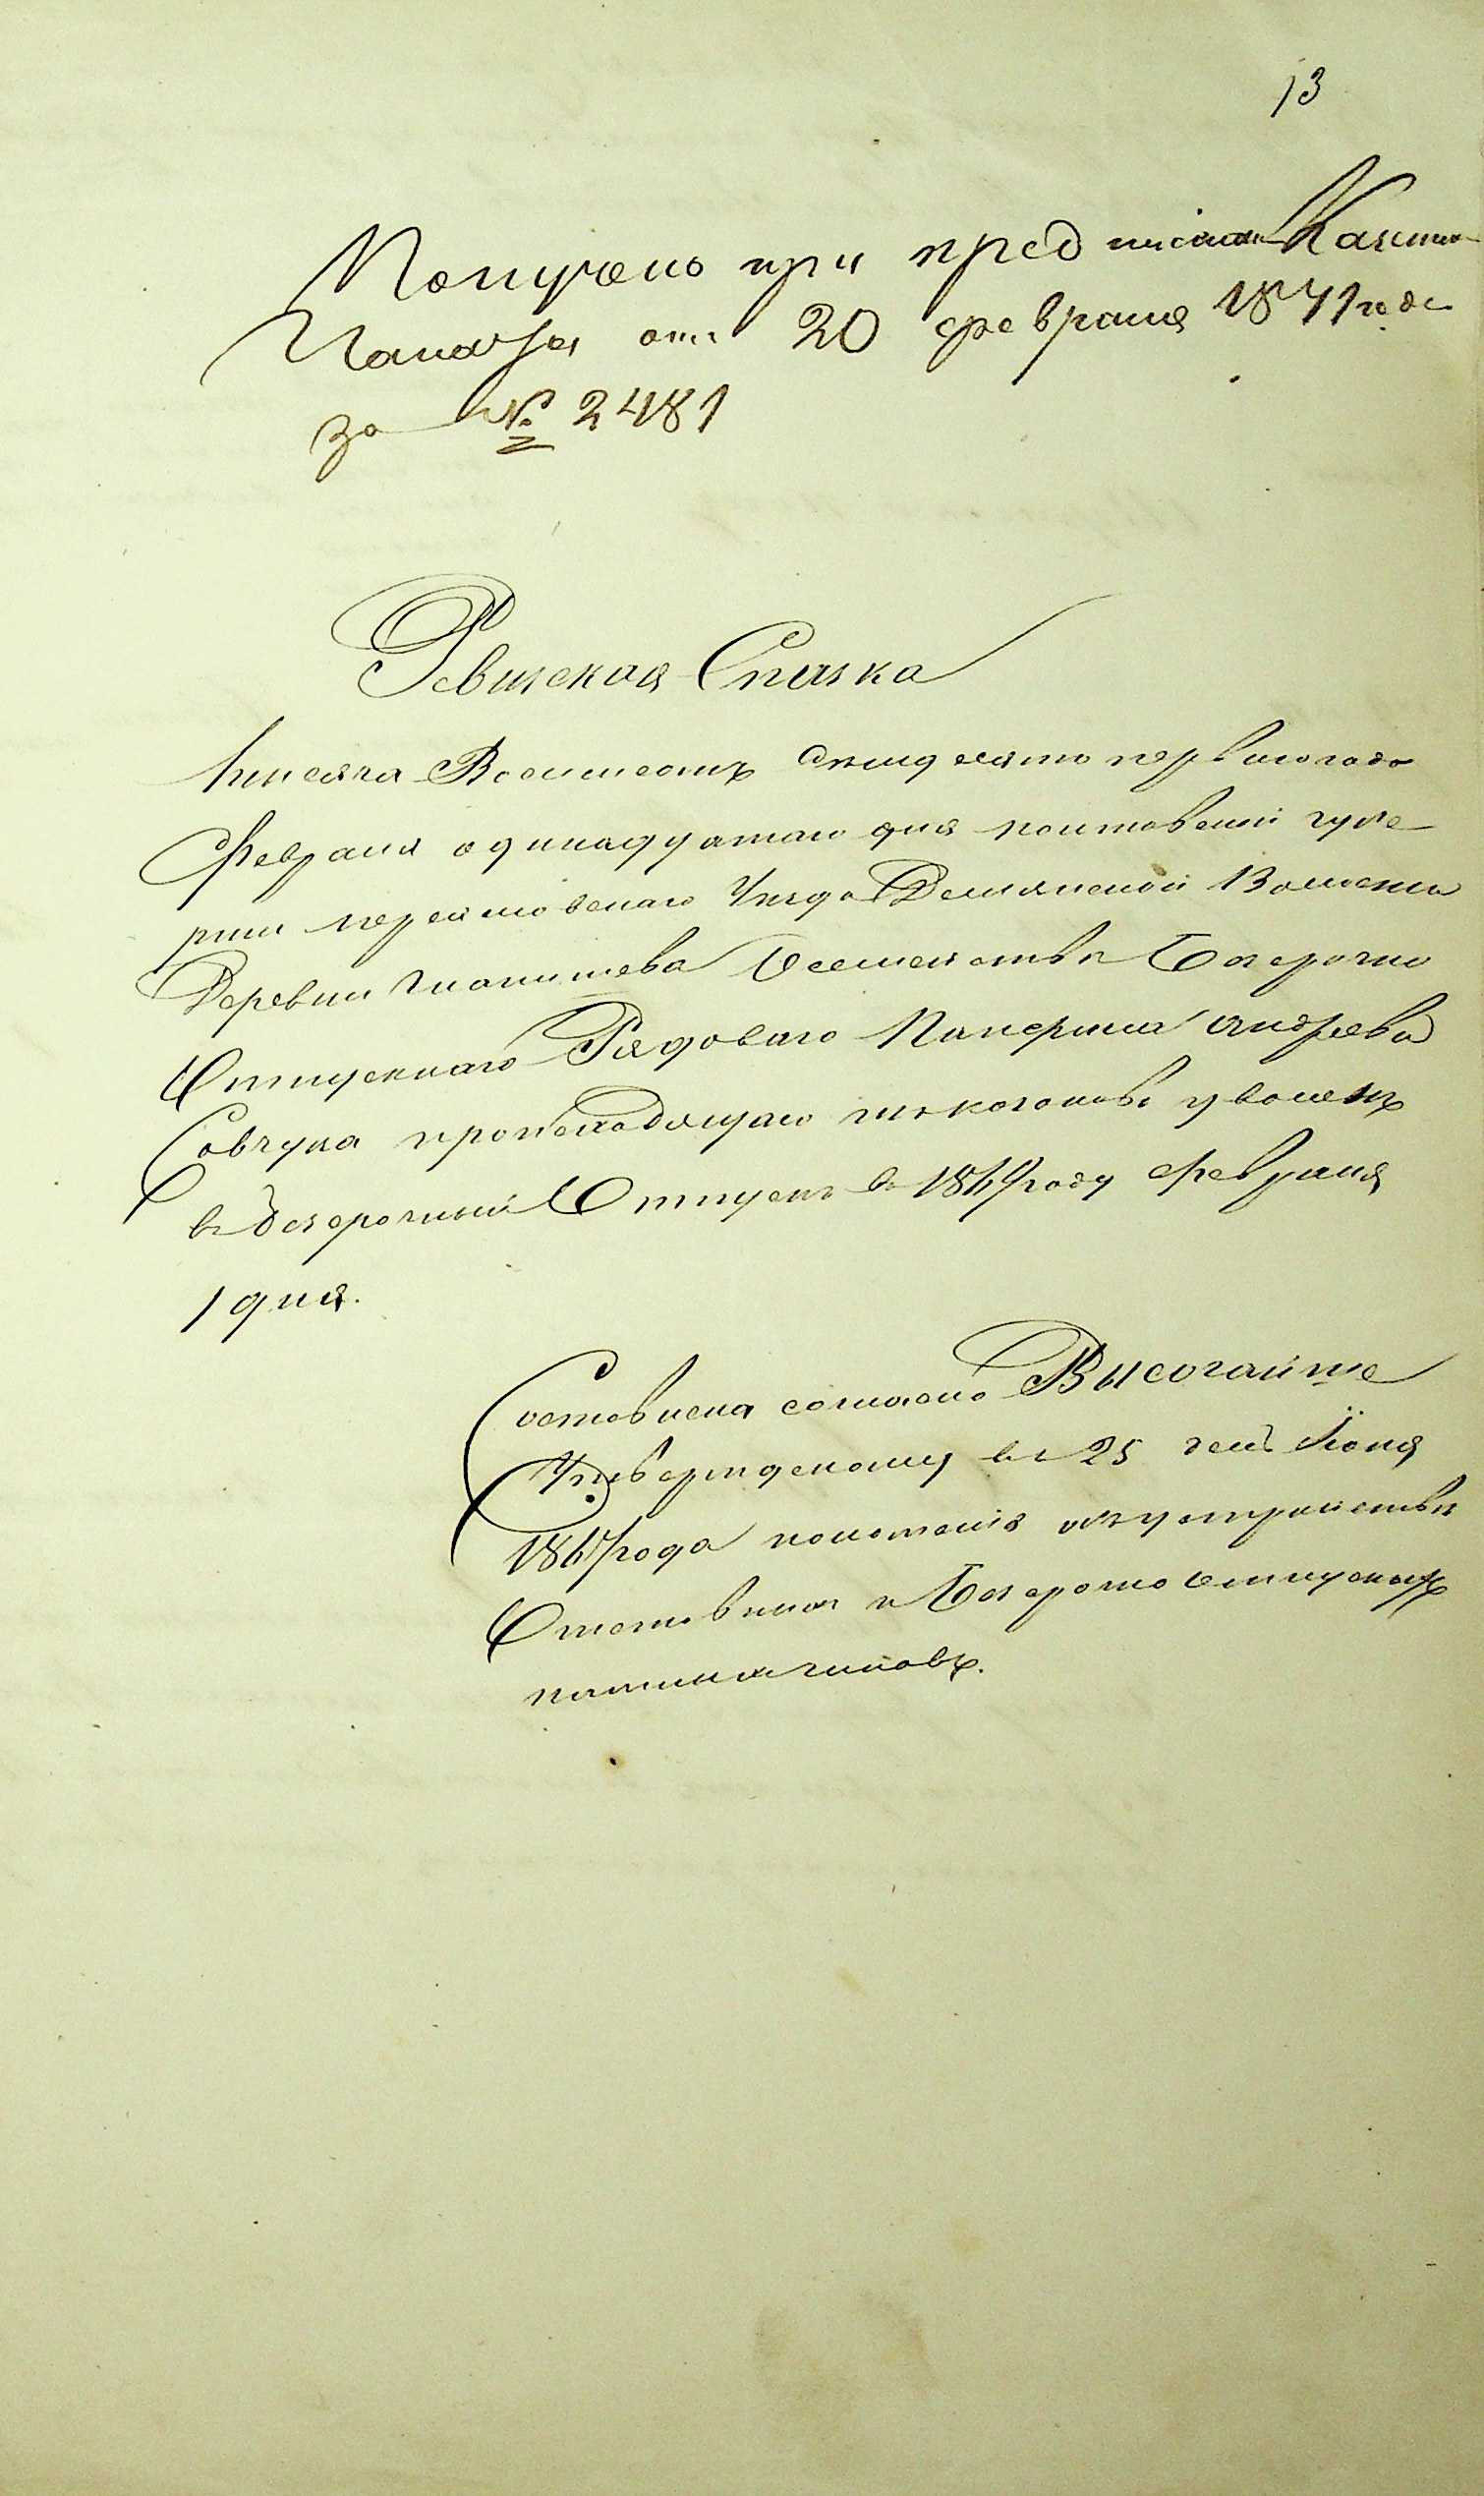 13
Получено при предписании Казенной
Палаты от 20 февраля 1871 года
за № 2481
Ревизская Сказка
Тысяча Восемьсотъ семидесято первого года
Февраля одинадцатаго дня полтовской губе
рнии переяславскаго Уезда Демянской Волости
Деревни о семействе Безсрочно
Отпускнаго Рядоваго Андреева
Савчука уволенъ
в безсрочный Отпускъ в 1869 году Февраля
1 дня.
Составлена согласно Высочайше
Утвержденому в 25 день Июня
1867 года положения объ устройстве
Отставных и Безсрочно отпускныхъ
нижних чиновъ.